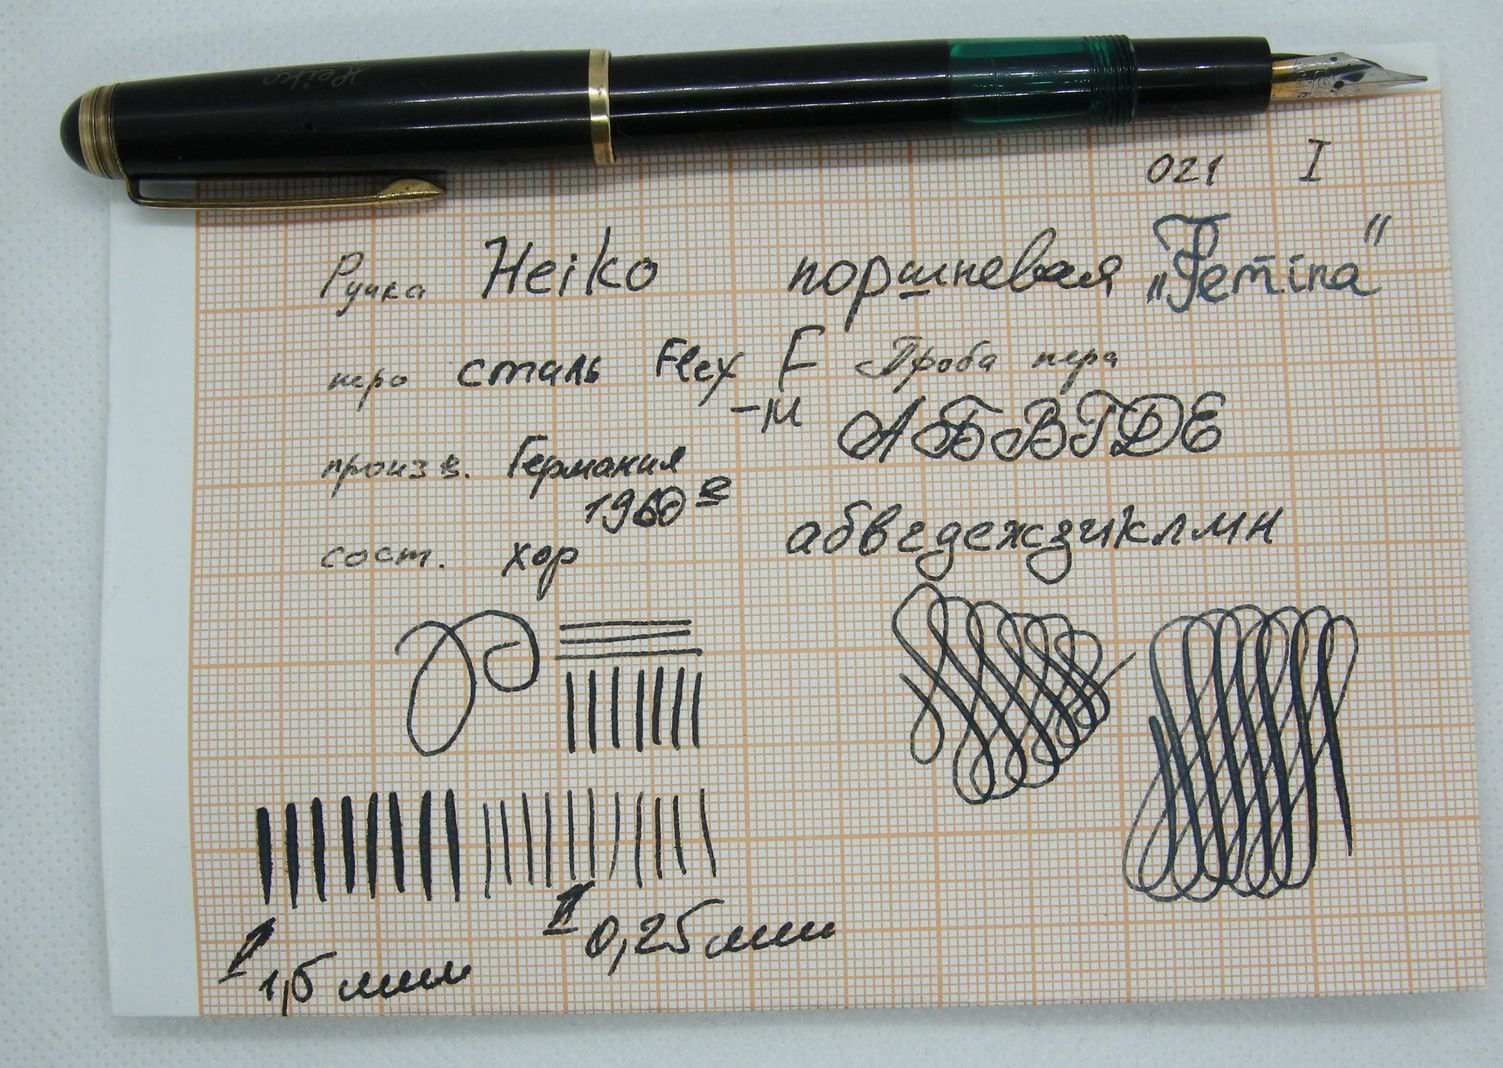 Heiko
021 I
Ручка Heiko поршневая „Femina“
перо сталь Flex F Проба пера
-М
АБВГДЕ
произв. Германия
1960е
абвгдежзиклмн
сост. хор
1,5 мм
0,25 мм